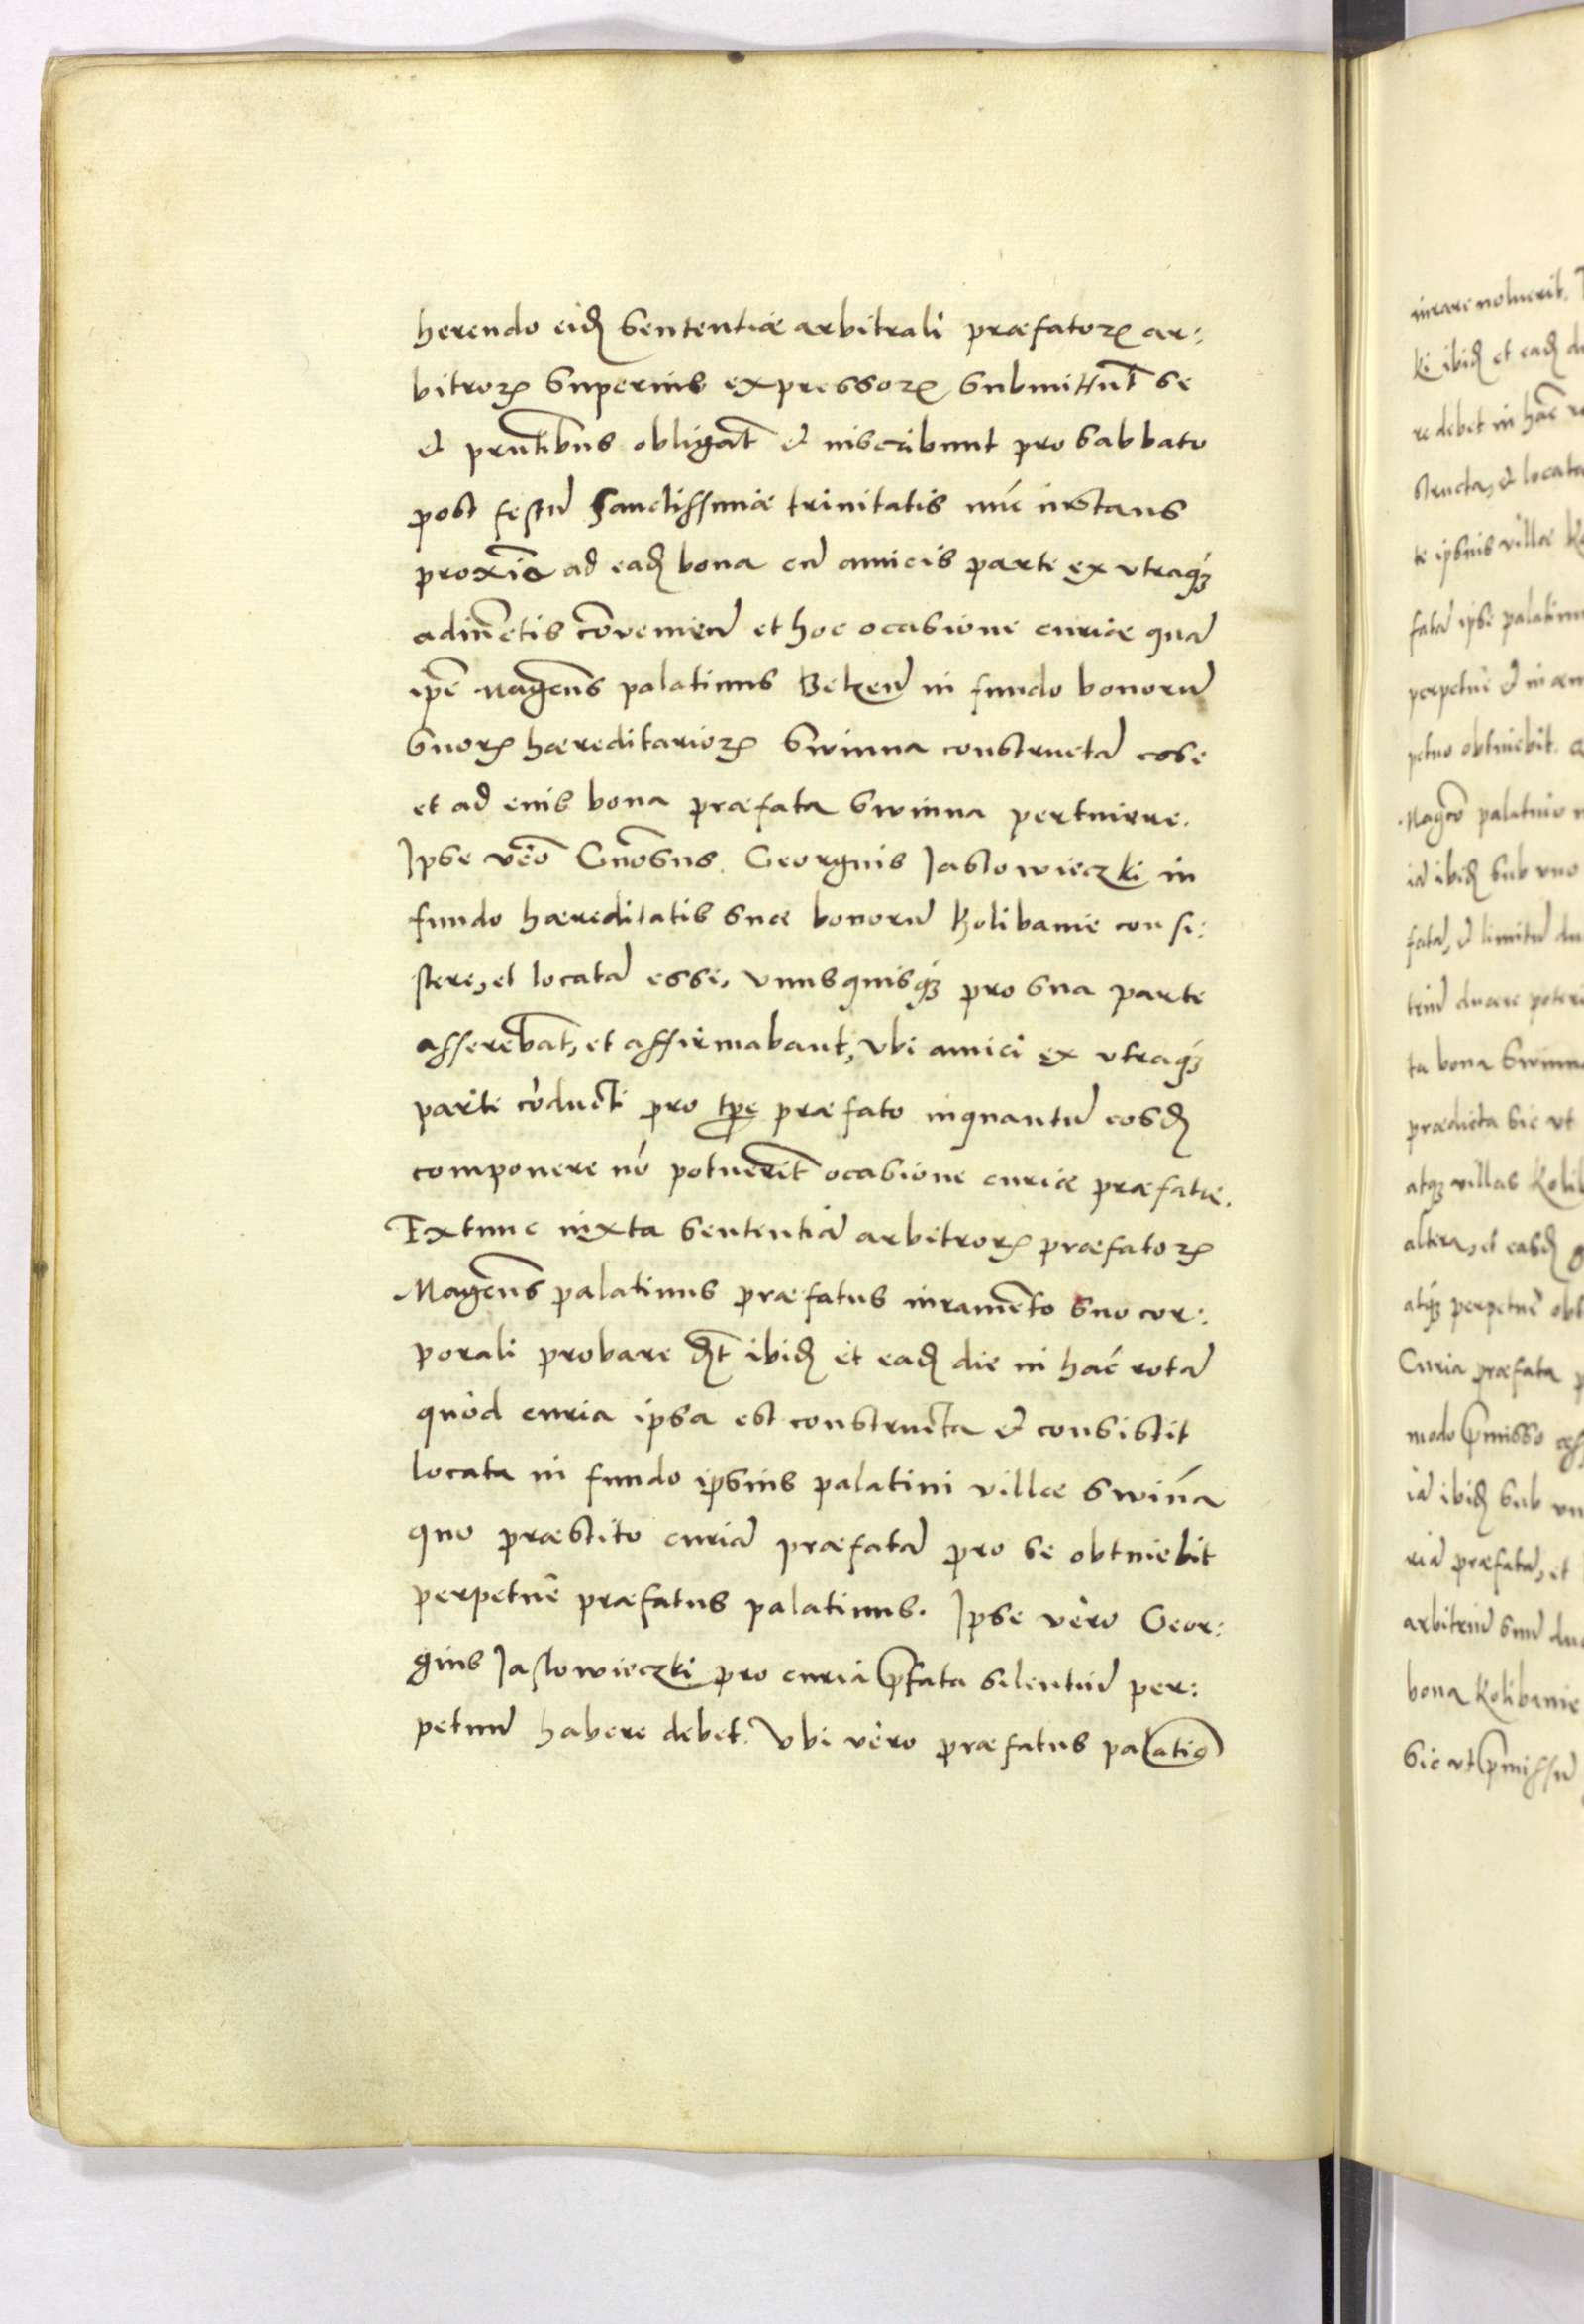 herendo eidꝫ sententiæ arbitrali præfatoꝝ ar:
bitroꝝ superius expressoꝝ submittūt se
& prntibus obligāt & inscribunt pro sabbato
post festū Sanctissimæ trinitatis nūc instans
proxīo ad eadꝫ bona cū amicis parte ex utraqꝫ
adiūctis cōveniend̄ et hoc ocasione curiæ quā
ip̄e Magcus palatinus Belzeñ in fundo bonorū
suoꝝ hæreditarioꝝ Swinna constructā esse
et ad eius bona præfata Swinna pertinere.
Ipse vēo Gnosus Georgius Jaslowieczki in
fundo hæreditatis suæ bonorū Kolibanie consi:
stere, et locatā esse, unusquisqꝫ pro sua parte
asserebāt, et affirmabant, Ubi amici ex utraqꝫ
parte cōducti pro tp̄e præfato inquantū eosdꝫ
componere nō potuerīt ocasione curiæ præfatæ.
Extunc iuxta sententiā arbitroꝝ præfatoꝝ
Magcus palatinus præfatus iuramēto suo cor:
porali probare dꝫt ibidꝫ et eadꝫ die in hāc rotā
quòd curia ipsa est constructa & consistit
locata in fundo ipsius palatini villæ Swiña
quo præstito curiā præfatā pro se obtinebit
perpetuè præfatus palatinus. Ipse vèro Geor:
gius Jaslowieczki pro curia p̄fata silentiū per:
petuū habere debet. Ubi vèro præfatus palatiꝯ